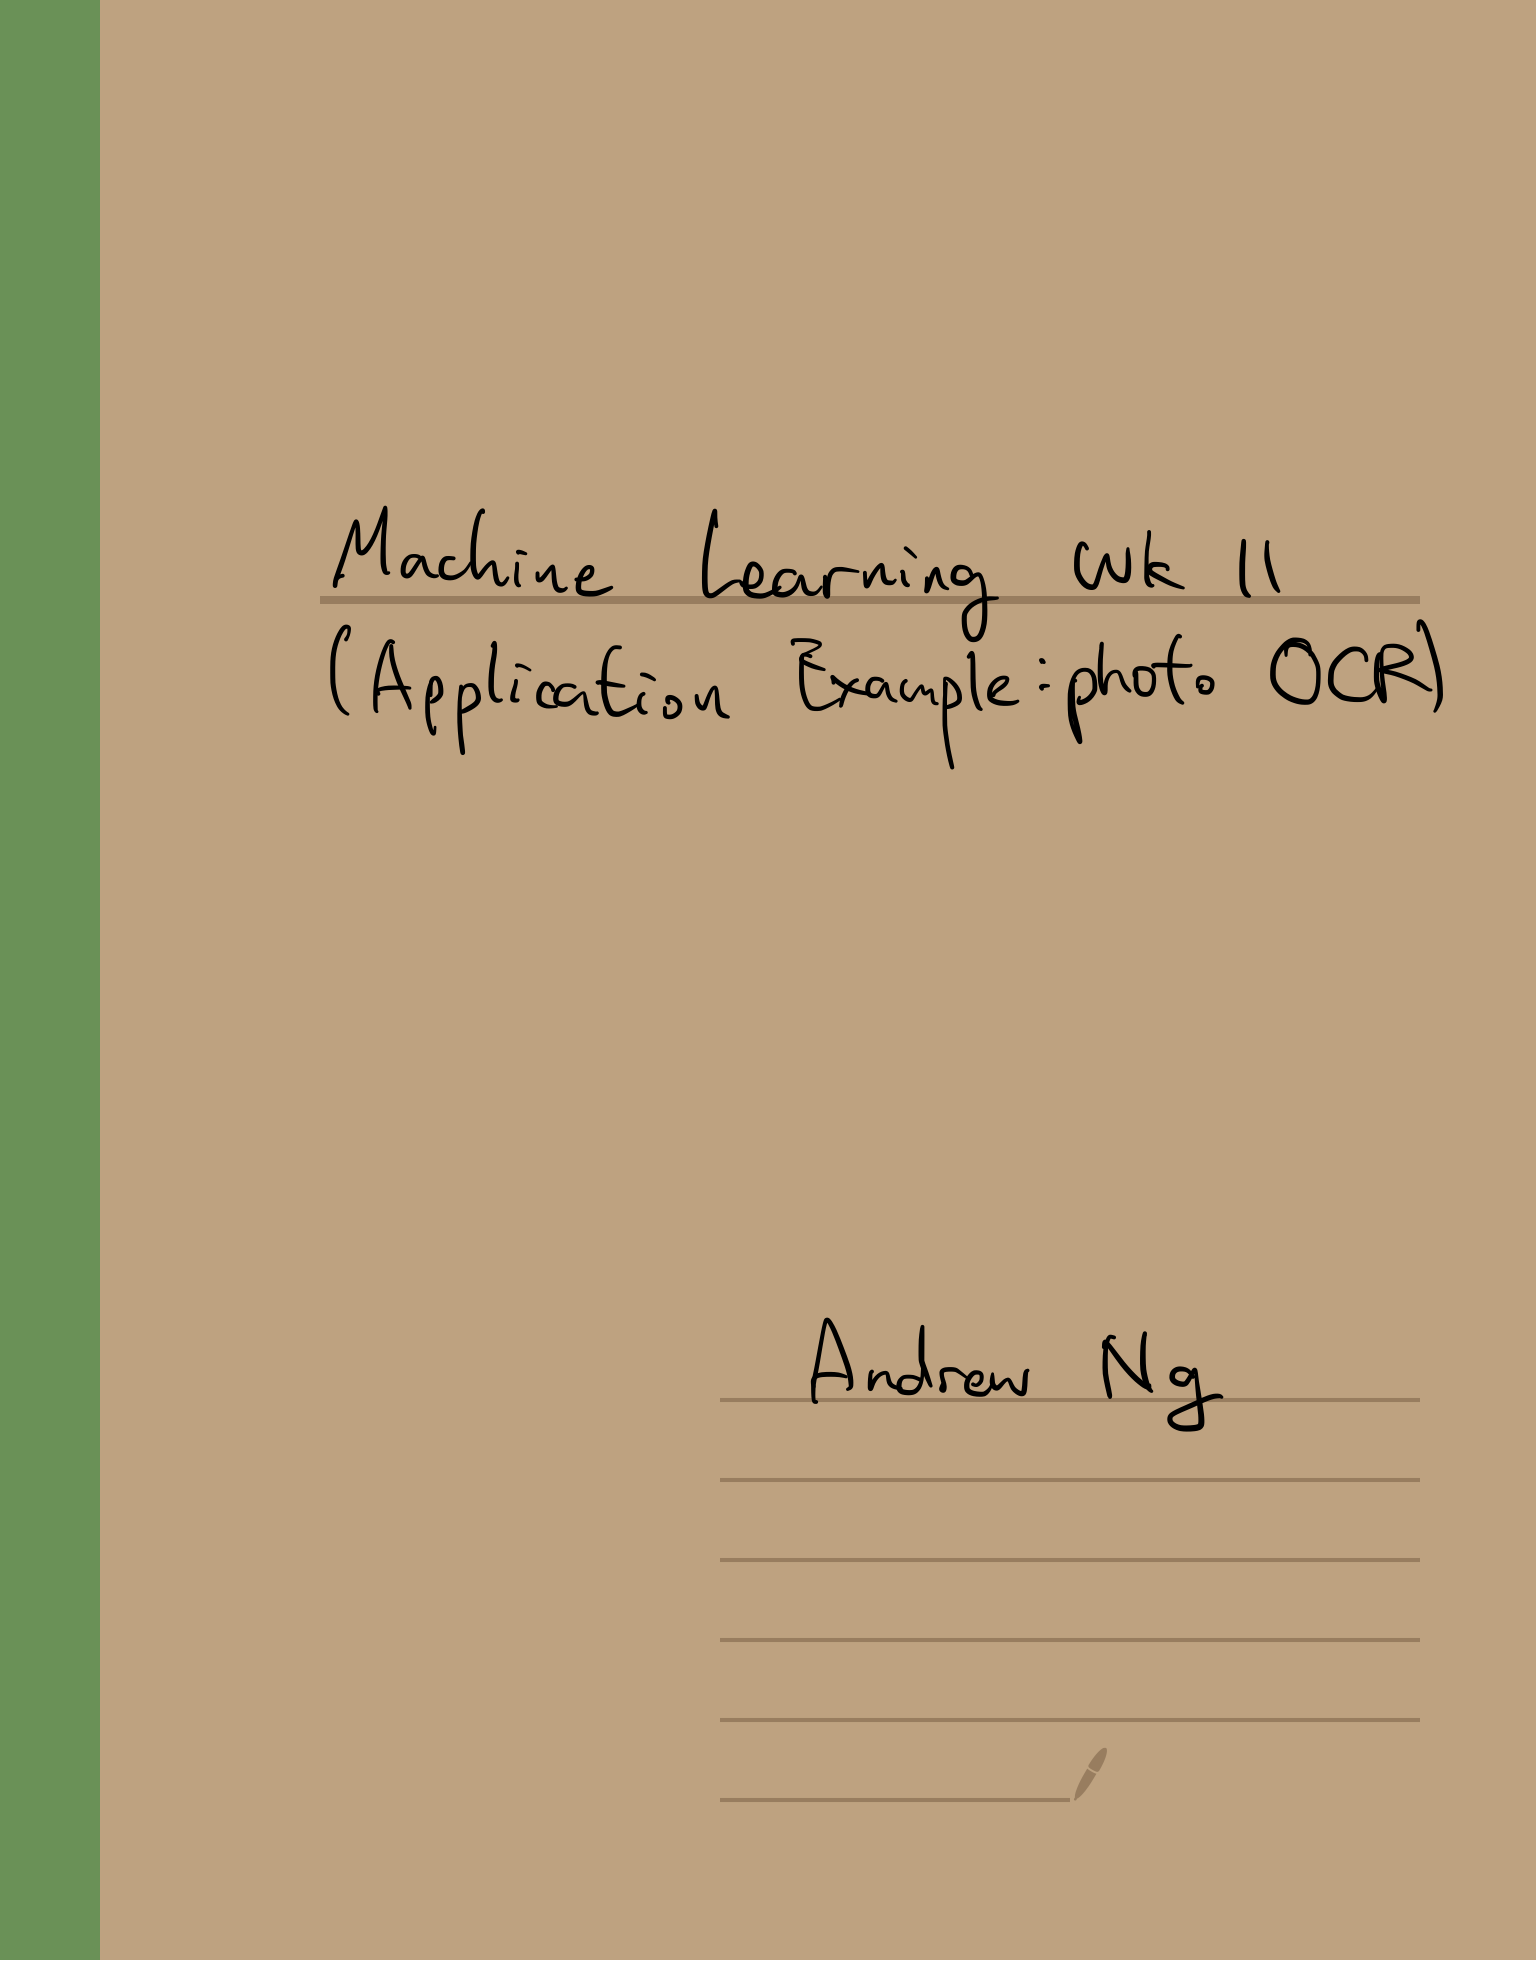 Machine Learning Wk 11
(Application Example: photo OCR)
Andrew Ng